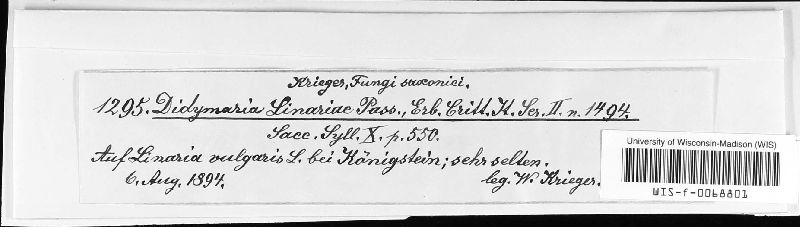 Krieger, Fungi saxonici.
1295. Didymaria Linariae Pass., Erb. Critt. It. Ser. II. n. 1494.
Sacc. Syll. X. p. 550.
Auf Linaria vulgaris L. bei Königstein; sehr selten.
6. Aug. 1894. leg. W. Krieger.
University of Wisconsin-Madison (WIS)
WIS-f-0068801